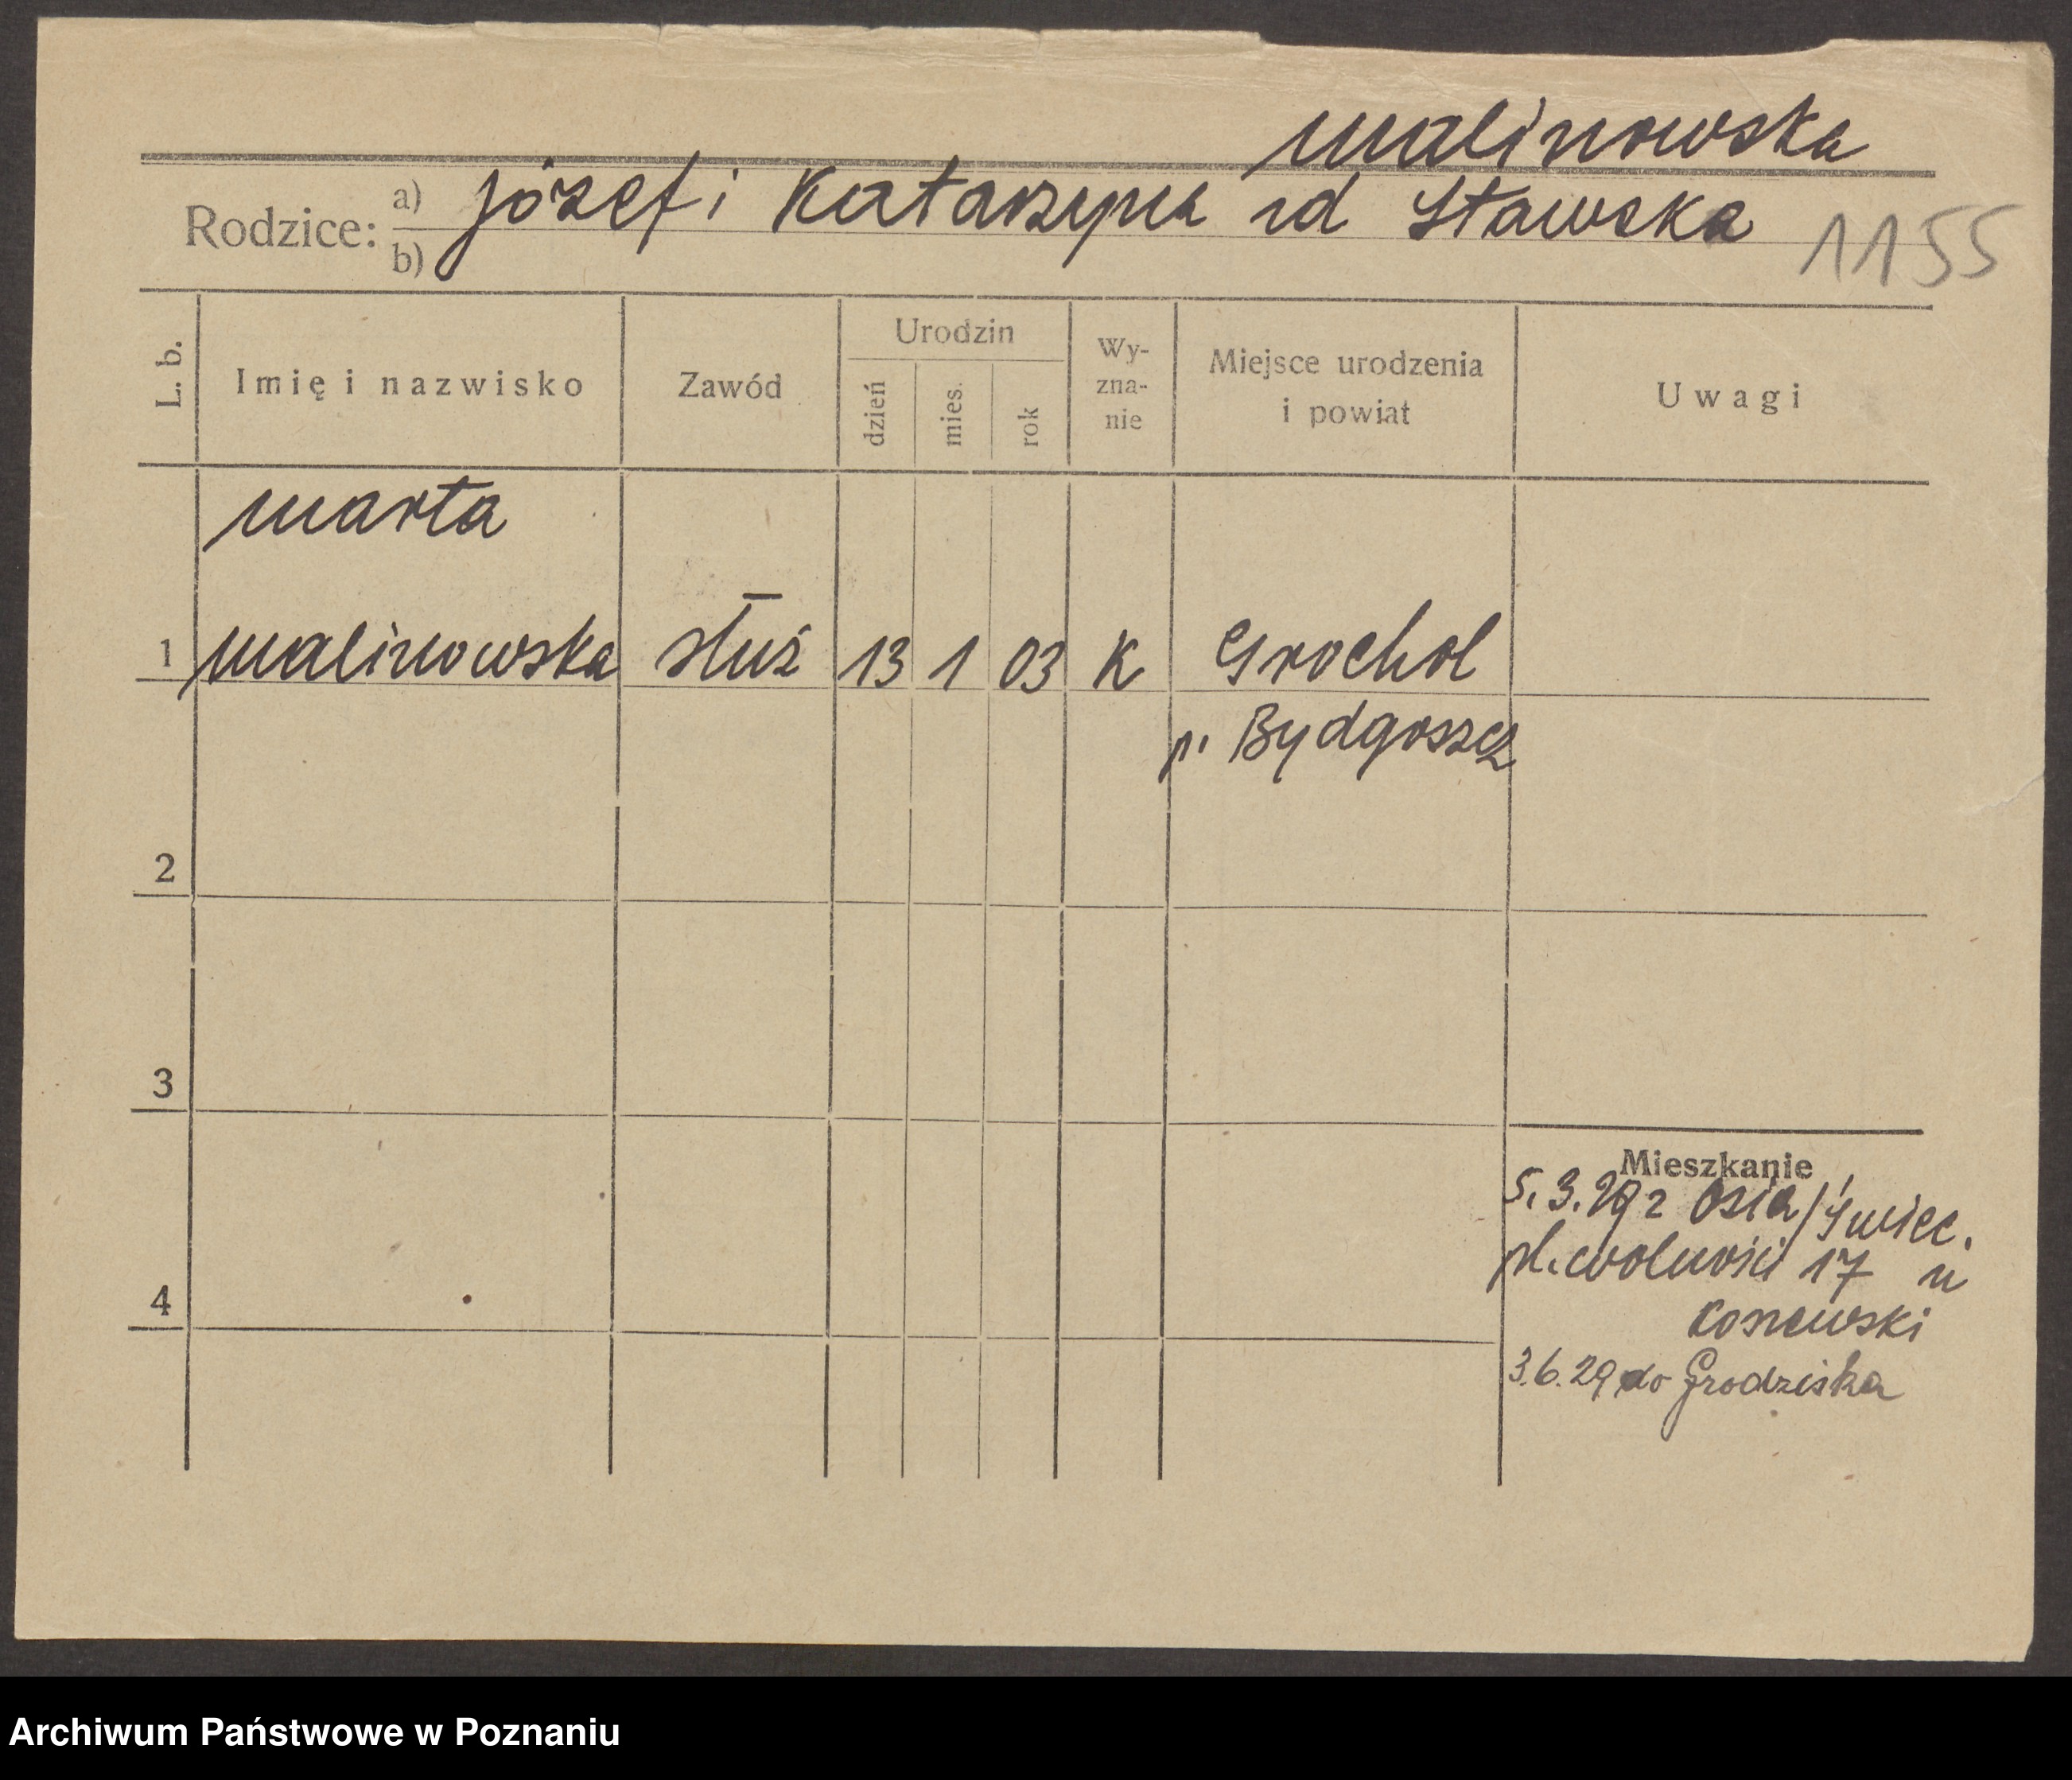 Malinowska
Rodzice: a) Józef i Katarzyna zd Stawska
b)
1155
L. b. Imię i nazwisko Zawód Urodzin dzień mies. rok Wyznanie Miejsce urodzenia i powiat Uwagi
Marta
1 Malinowska służ 13 1 03 K Grochol
p. Bydgoszcz
2
3
Mieszkanie
5.3.29 z Osia/Świec.
pl. Wolności 17 u
4
3.6.29 do Grodziska
Archiwum Państwowe w Poznaniu